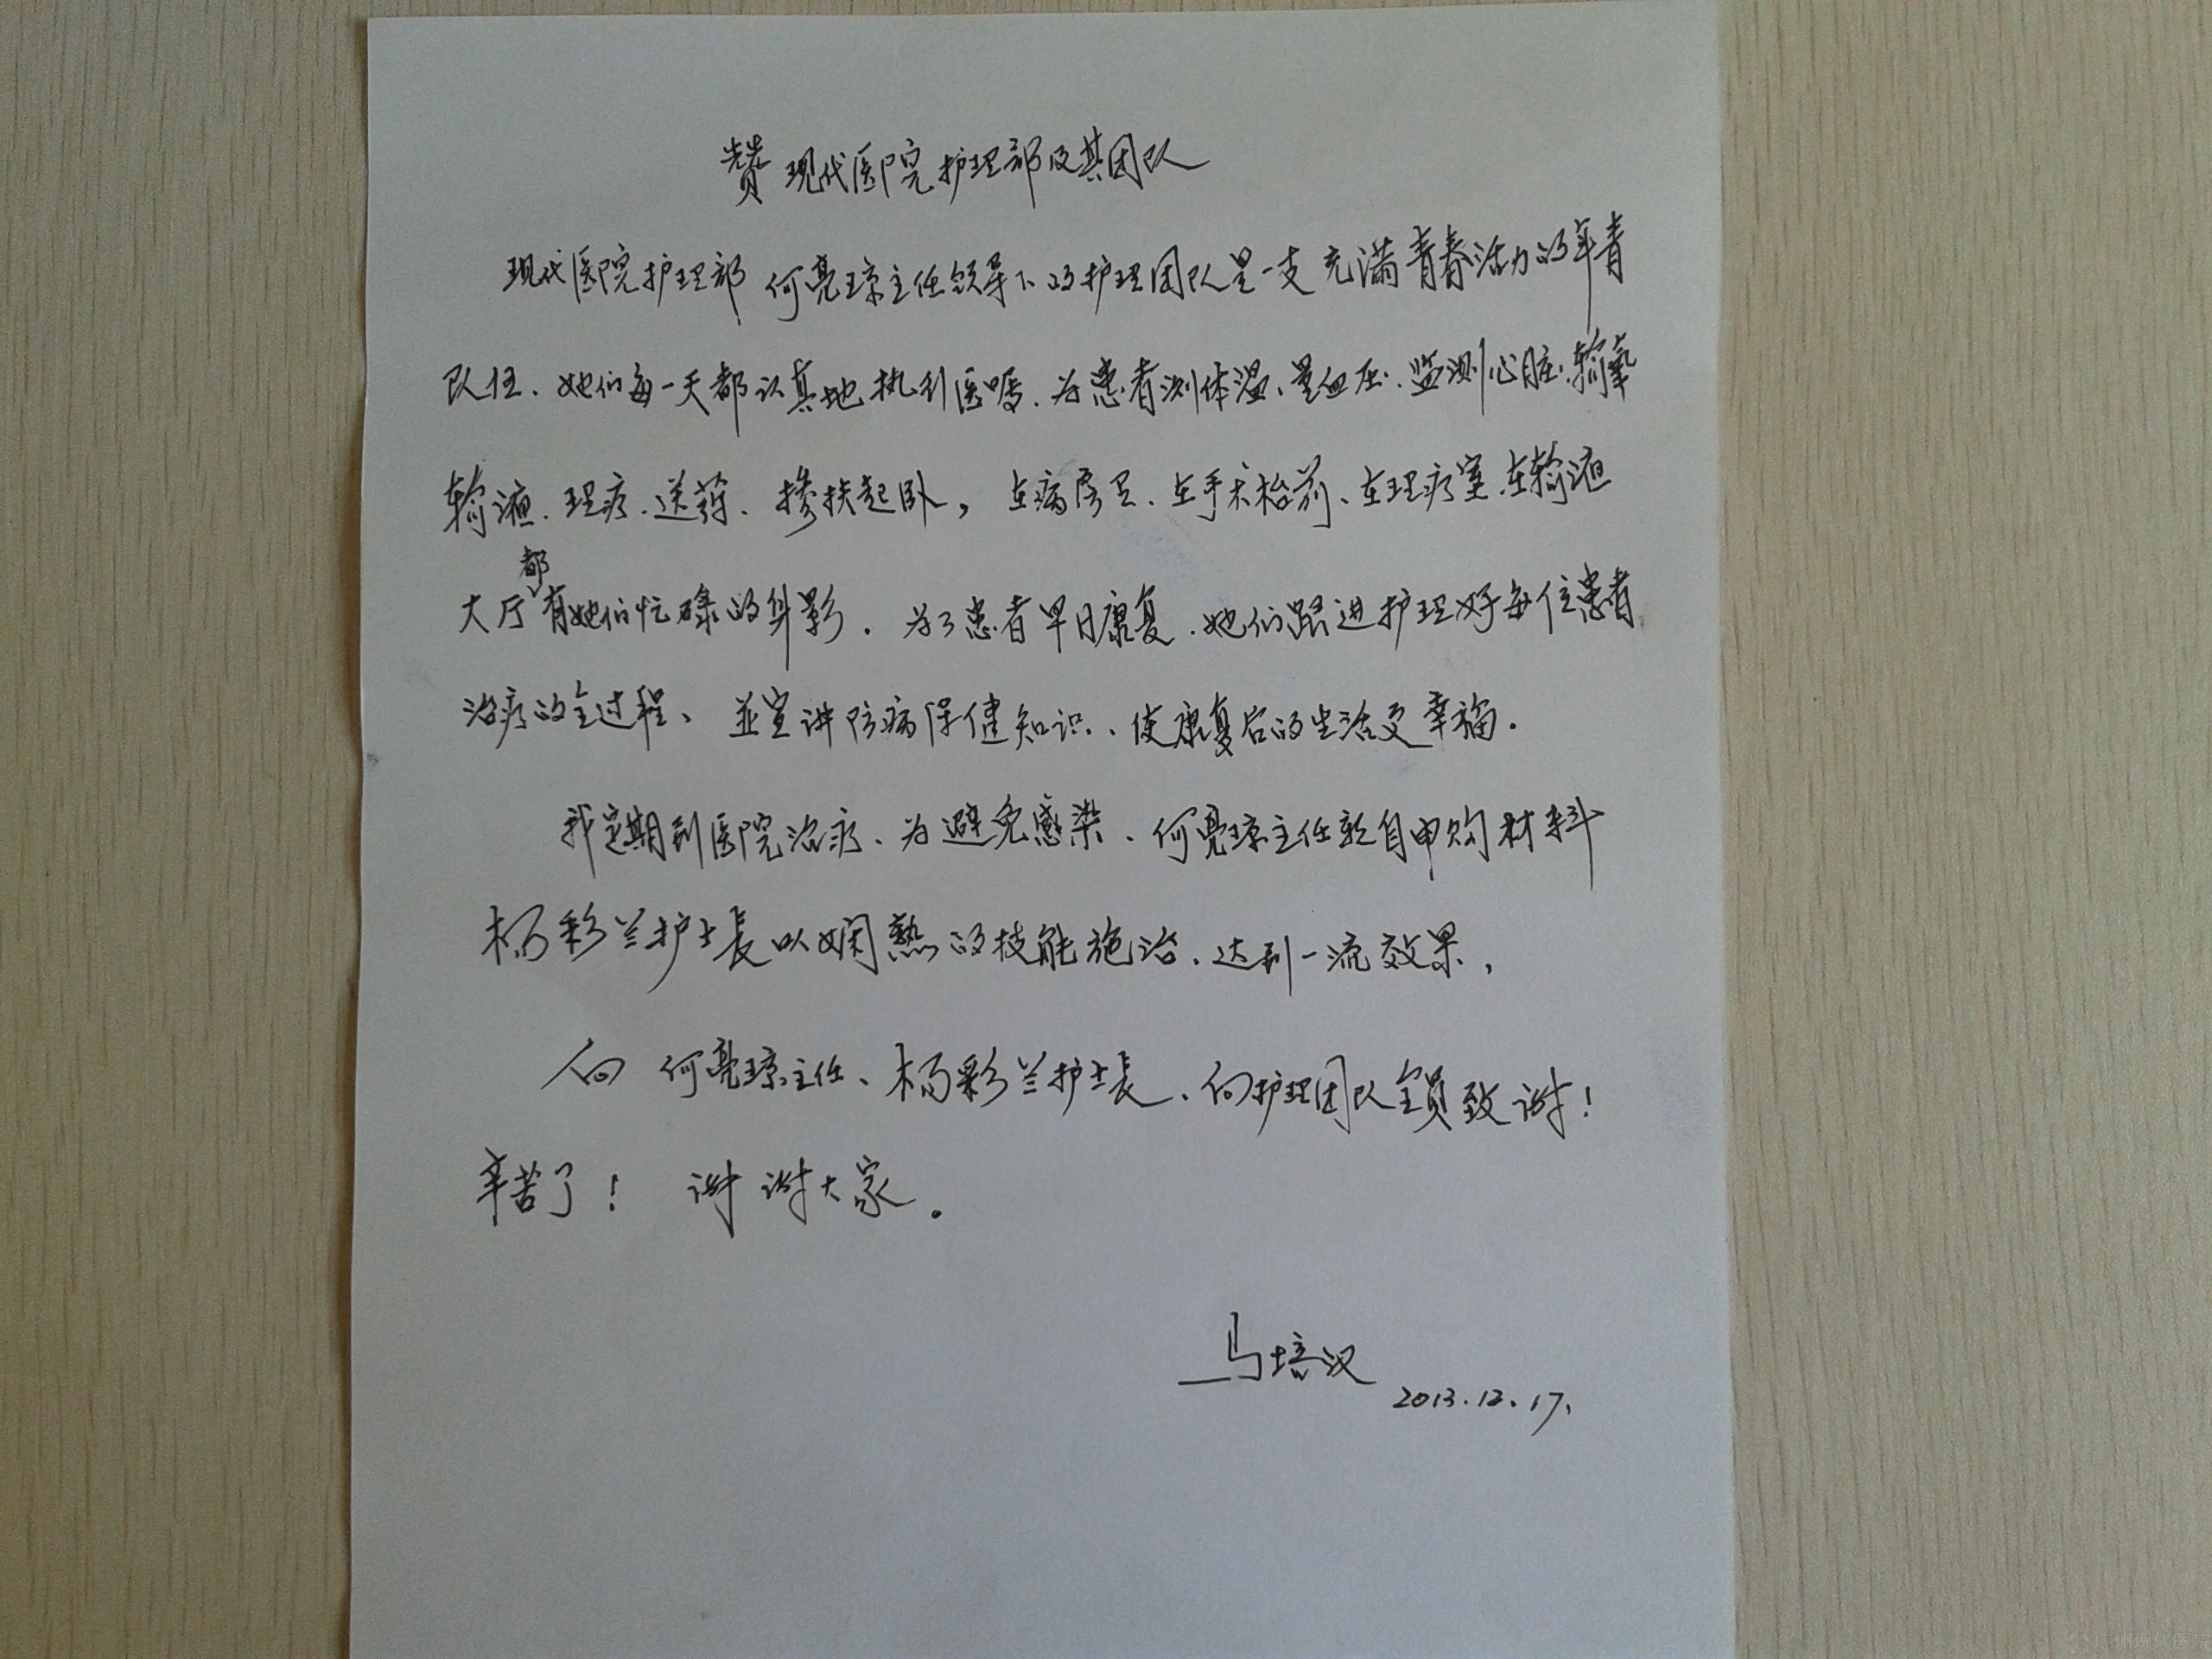 赞现代医院护理部及其团队
现代医院护理部何亮琼主任领导下的护理团队是一支充满青春活力的年青
队伍、她们每一天都认真地执行医嘱、为患者测体温、量血压、监测心脏、输氧
输液、理疗、送药、掺扶起卧，在病房里、在手术枱前、在理疗室、在输液
大厅都有她们忙碌的身影．为了患者早日康复、她们跟进护理好每位患者
治疗的全过程、並宣讲防病保健知识、使康复后的生活更幸福．
我定期到医院治疗、为避免感染、何亮琼主任亲自申购材料
杨彩兰护士長以娴熟的技能施治、达到一流效果，
向 何亮琼主任、杨彩兰护士長、向护理团队全員致谢！
辛苦了！ 谢谢大家。
马培汉
2013.12.17、
广州现代医院